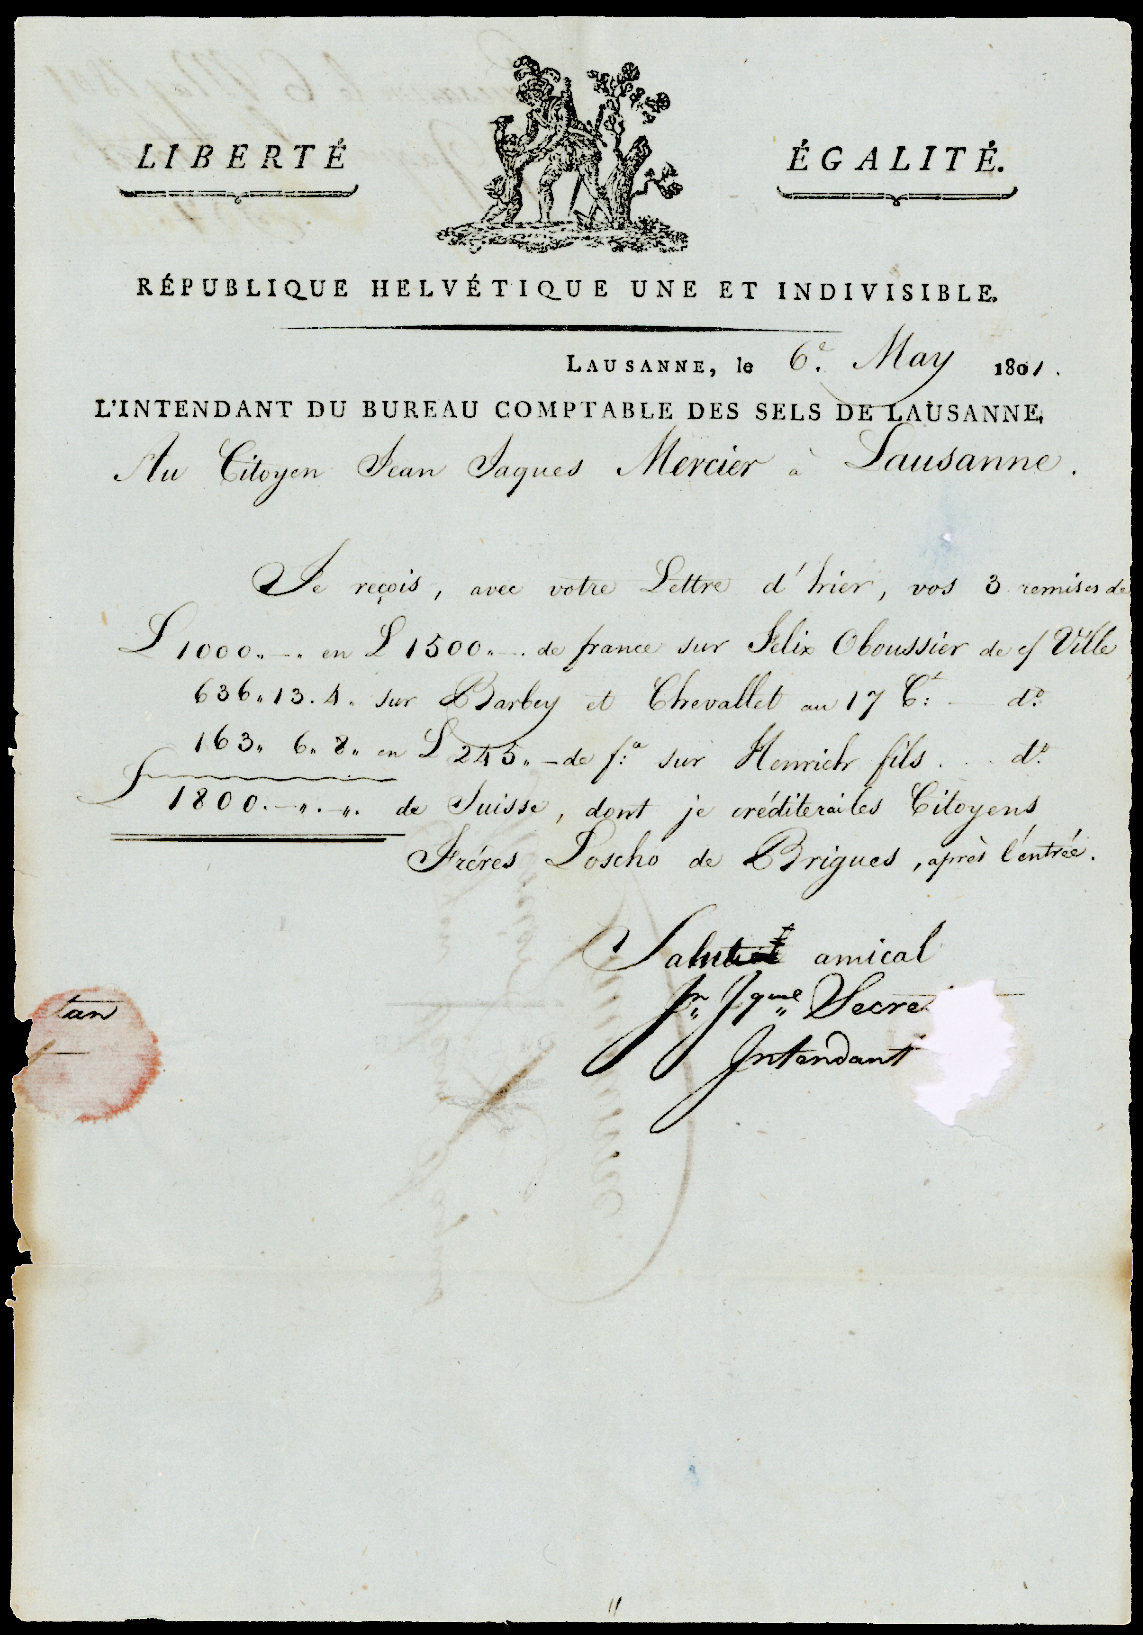 LIBERTÉ ÉGALITÉ.
RÉPUBLIQUE HELVÉTIQUE UNE ET INDIVISIBLE.
LAUSANNE, le 6e. May 1801.
L'INTENDANT DU BUREAU COMPTABLE DES SELS DE LAUSANNE,
Au Citoyen Jean Jaques Mercier à Lausanne.
Je reçois, avec votre Lettre d'hier, vos 3 remises de
L 1000.. —.. en L 1500.. —.. de france sur Felix Oboussier de c/ Ville
636.. 13. 4. sur Barbey et Chevallet au 17 Ct: — do.
163.. 6.. 8.. en L 245.. — de f:a sur Henrich fils . . . do.
L 1800. — ". ". de Suisse, dont je créditerai les Citoyens
Fréres Loscho de Brigues, après l'entrée.
Salut amical
Jn.. Jques.. Secre
Intendant
tan